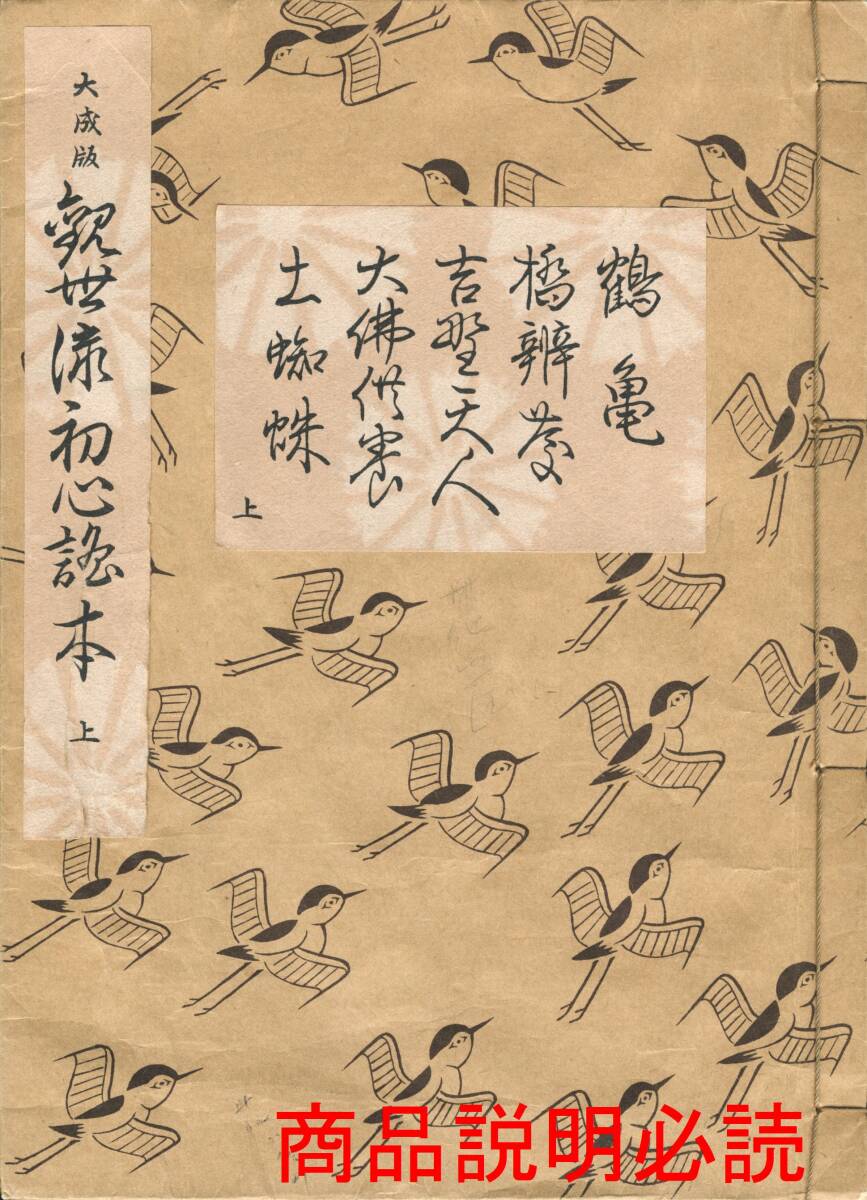 大成版
觀世流初心謠本
上
鶴亀
橋辨慶
吉野天人
大佛供養
土蜘蛛
上
商品説明必読